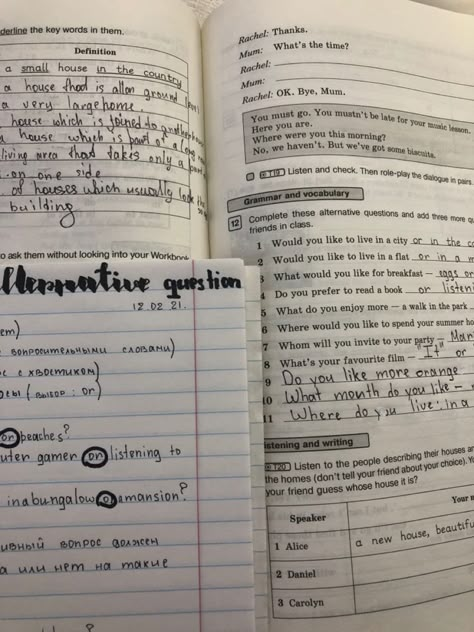 derline the key words in them.
Definition
a small house in the country
a house that is all on ground level
a very large home.
house which is joined to another house
a house which is part of a long row
living area that takes only a part
. on one side
of houses which usually look the
building
to ask them without looking into your Workbook
Alternative question
12.02.21.
вопросительными словами)
с хвостиком)
(выбор: or)
or peaches?
uter games or listening to
in a bungalow or a mansion?
ивный вопрос должен
а или нет на такие
Rachel: Thanks.
Mum: What's the time?
Rachel:
Mum:
Rachel: OK. Bye, Mum.
You must go. You mustn't be late for your music lesson.
Here you are.
Where were you this morning?
No, we haven't. But we've got some biscuits.
Listen and check. Then role-play the dialogue in pairs.
Grammar and vocabulary
12 Complete these alternative questions and add three more qu
friends in class.
1 Would you like to live in a city or in the co
2 Would you like to live in a flat or in a m
3 What would you like for breakfast — eggs or
4 Do you prefer to read a book or listeni
5 What do you enjoy more — a walk in the park
6 Where would you like to spend your summer ho
7 Whom will you invite to your party — Mari
8 What's your favourite film — "It" or
9 Do you like more orange
10 What month do you like —
11 Where do you live: in a
istening and writing
T20 Listen to the people describing their houses an
the homes (don't tell your friend about your choice). Yo
your friend guess whose house it is?
Speaker
Your n
1 Alice
a new house, beautifu
2 Daniel
3 Carolyn